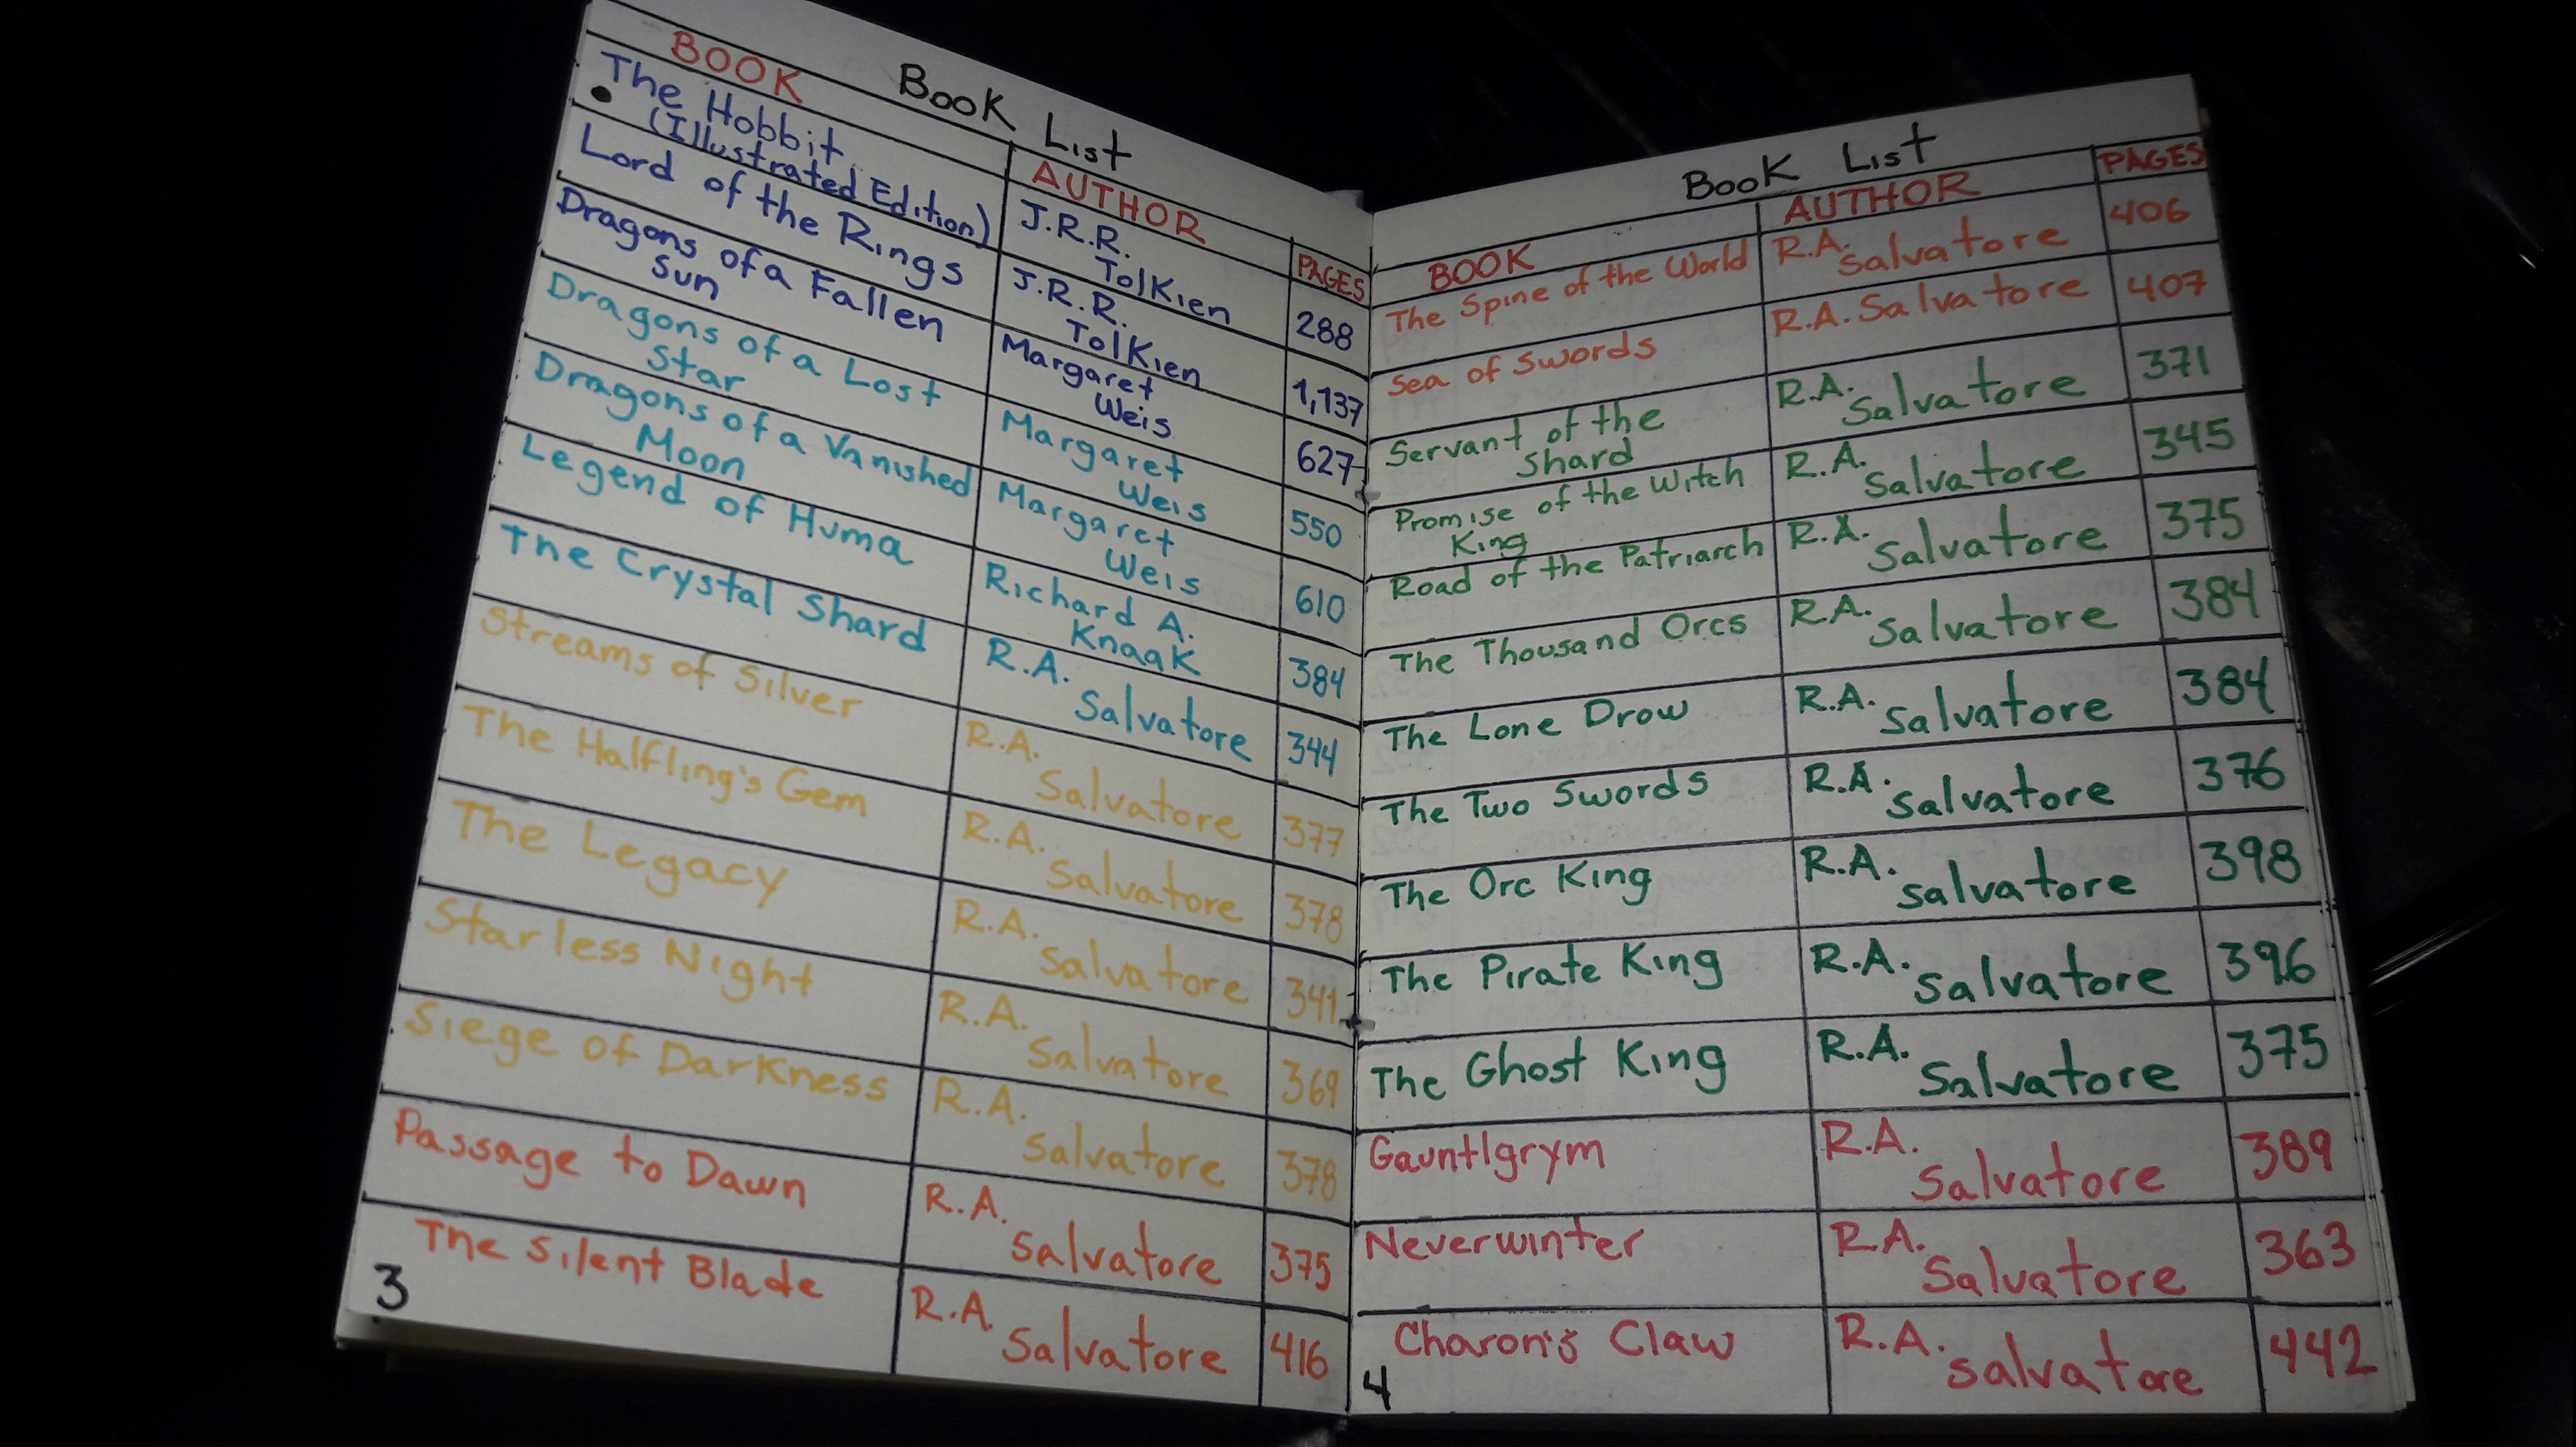 Book List
BOOK AUTHOR PAGES
The Hobbit
(Illustrated Edition)
J.R.R.
Tolkien
288
Lord of the Rings
J.R.R.
Tolkien
1,137
Dragons of a Fallen
Sun
Margaret
Weis
627
Dragons of a Lost
Star
Margaret
Weis
550
Dragons of a Vanished
Moon
Margaret
Weis
610
Legend of Huma
Richard A.
Knaak
384
The Crystal Shard
R.A.
Salvatore
344
Streams of Silver
R.A.
Salvatore
377
The Halfling's Gem
R.A.
Salvatore
378
The Legacy
R.A.
Salvatore
341
Starless Night
R.A.
Salvatore
369
Siege of Darkness
R.A.
Salvatore
378
Passage to Dawn
R.A.
Salvatore
375
The Silent Blade
R.A.
Salvatore
416
3
Book List
BOOK AUTHOR PAGES
The Spine of the World
R.A.
Salvatore
406
Sea of Swords
R.A. Salvatore
407
Servant of the
Shard
R.A.
Salvatore
371
Promise of the Witch
King
R.A.
Salvatore
345
Road of the Patriarch
R.A.
Salvatore
375
The Thousand Orcs
R.A.
Salvatore
384
The Lone Drow
R.A.
Salvatore
384
The Two Swords
R.A.
Salvatore
376
The Orc King
R.A.
Salvatore
398
The Pirate King
R.A.
Salvatore
396
The Ghost King
R.A.
Salvatore
375
Gauntlgrym
R.A.
Salvatore
389
Neverwinter
R.A.
Salvatore
363
Charon's Claw
R.A.
Salvatore
442
4